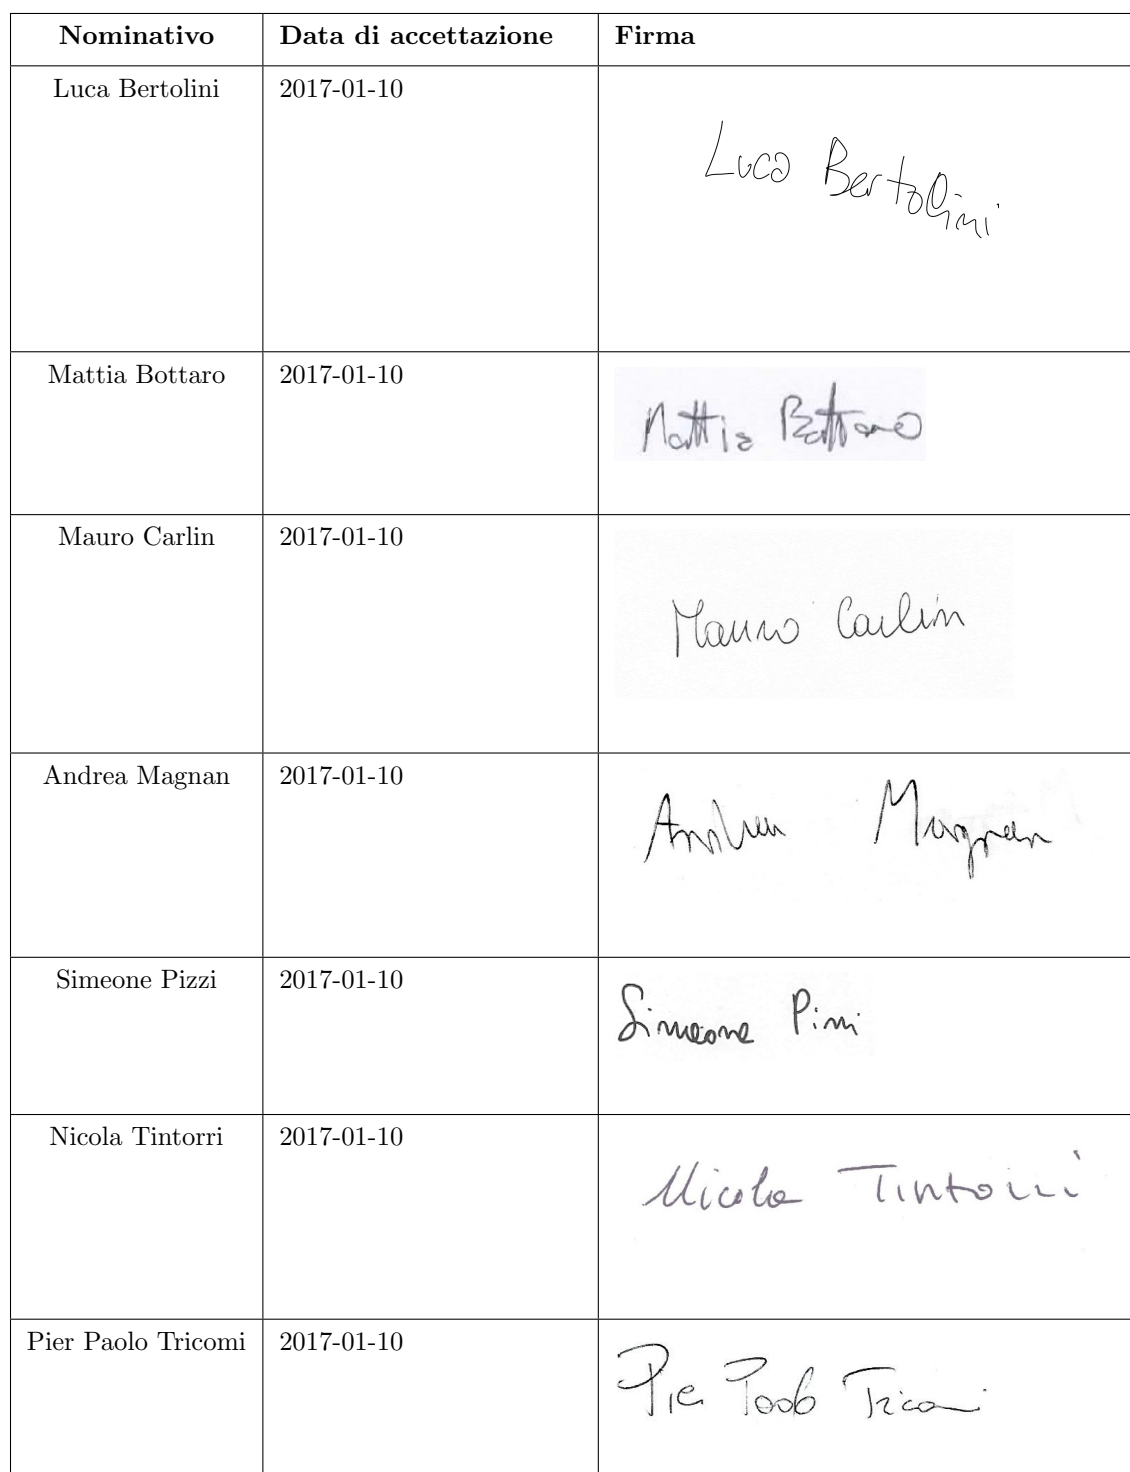 Nominativo Data di accettazione Firma
Luca Bertolini 2017-01-10
Luca Bertolini
Mattia Bottaro 2017-01-10
Mattia Bottaro
Mauro Carlin 2017-01-10
Mauro Carlin
Andrea Magnan 2017-01-10
Andrea Magnan
Simeone Pizzi 2017-01-10
Simeone Pizzi
Nicola Tintorri 2017-01-10
Nicola Tintorri
Pier Paolo Tricomi 2017-01-10
Pier Paolo Tricomi